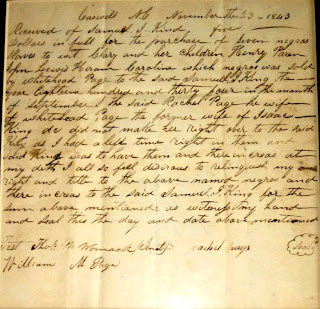 Caswell NC November the 23 - 1843
Received of Samuel S. King five
Dollars in full for the purchase of seven negros
Slaves to wit Clary and her children Henry
Lewis Hiram Caroline which negros was sold
Whitehead Page to the said Samuel S. King the
year Eighteen hundred and thirty four in the month
of September I the said Rachel Page the wife
of Whitehead Page the former wife of Isaac
King did not make right over to the said
King as I had a life time right in them and
said King was to have them and there increas at
my deth I all so feel disirous to relinquish my
right and title to the above named negros and
there increas to the said Samuel S. King for the
sum above mentioned as witness my hand
and Seal this the day and date above mentioned
Test Thos W Womack rachel page Seal
William M Page